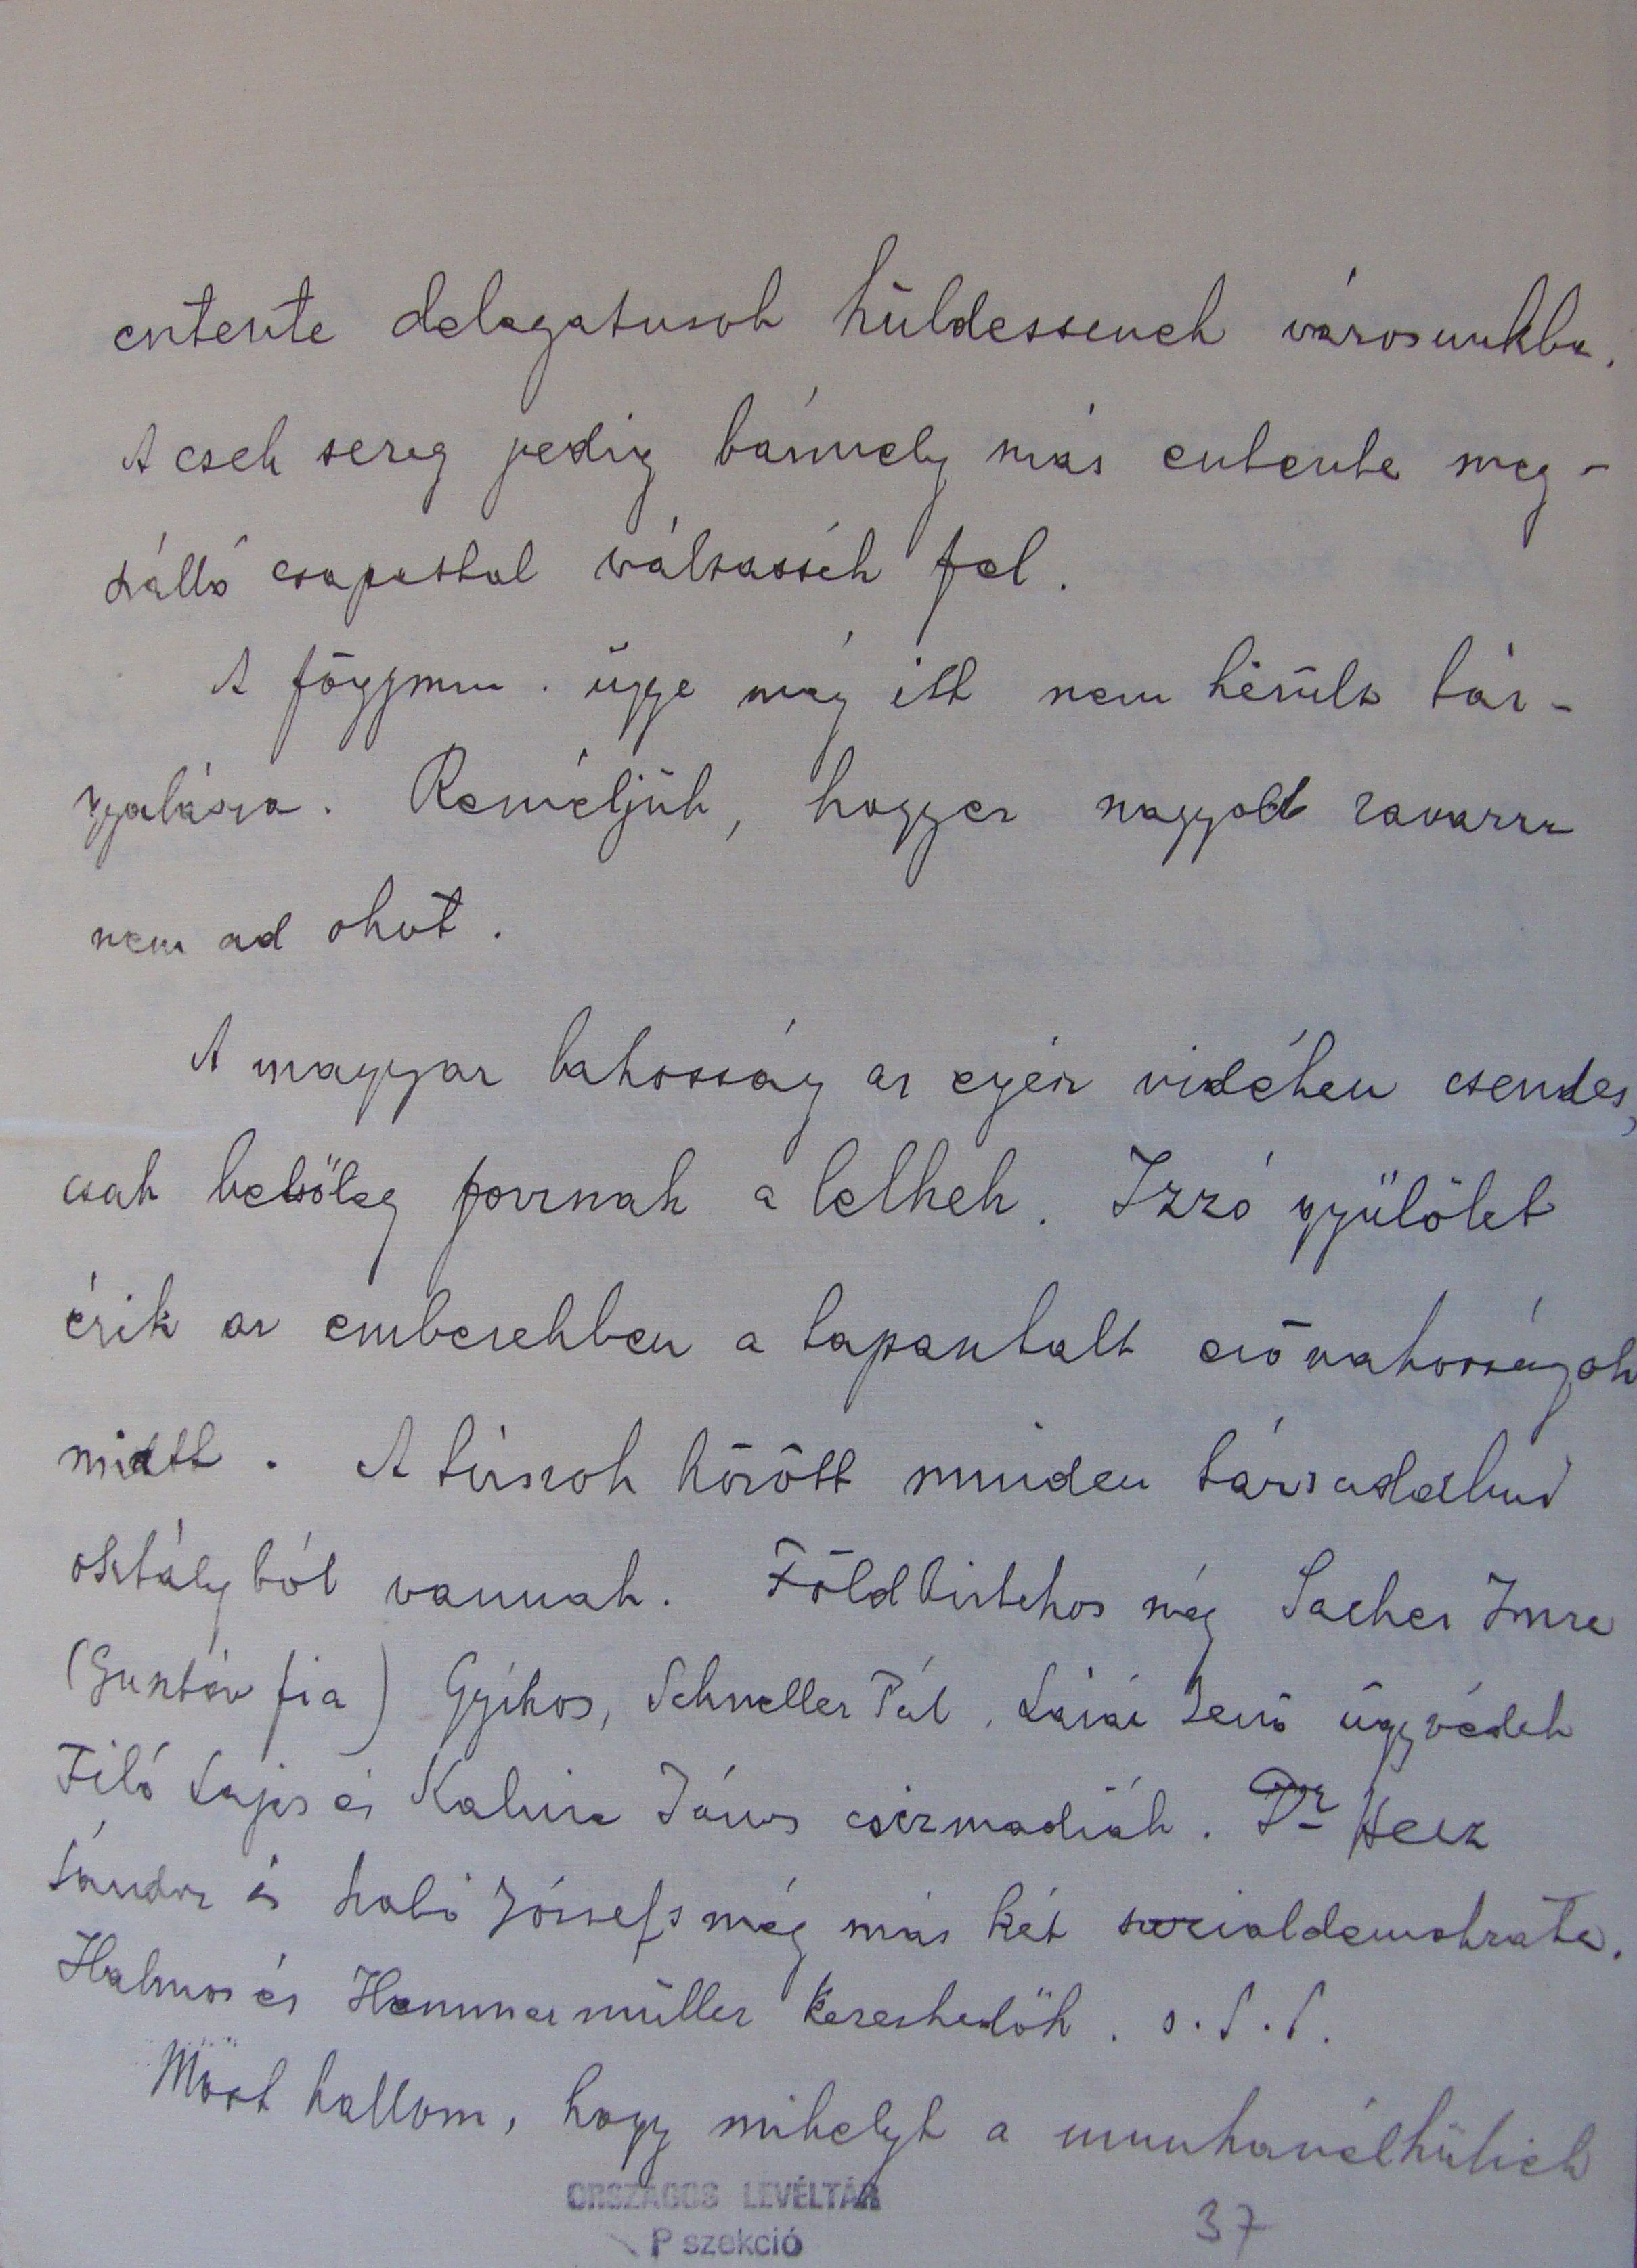 entente delegatusok küldessenek városunkba.
A cseh sereg pedig bármely más entente meg-
szálló csapattal váltassék fel.
A főgymn. ügye még itt nem került tár-
gyalásra. Reméljük, hogy ez nagyobb zavarra
nem ad okot.
A magyar lakosság az egész vidéken csendes,
csak belsőleg forrnak a lelkek. Izzó gyűlölet
érik az emberekben a tapasztalt erőszakosságok
miatt. A túszok között minden társadalmi
osztályból vannak. Földbirtokos még Sacher Imre
(Gusztáv fia) Gyikos, Schneller Pál, Jenő ügyvédek
Filó Lajos és János csizmadiák. Dr Herz
Sándor és József s még más két socialdemokrata.
Halmos és Hammermüller kereskedők. s. t. t.
Most hallom, hogy mihelyt a munkanélküliek
ORSZÁGOS LEVÉLTÁR
P szekció
37